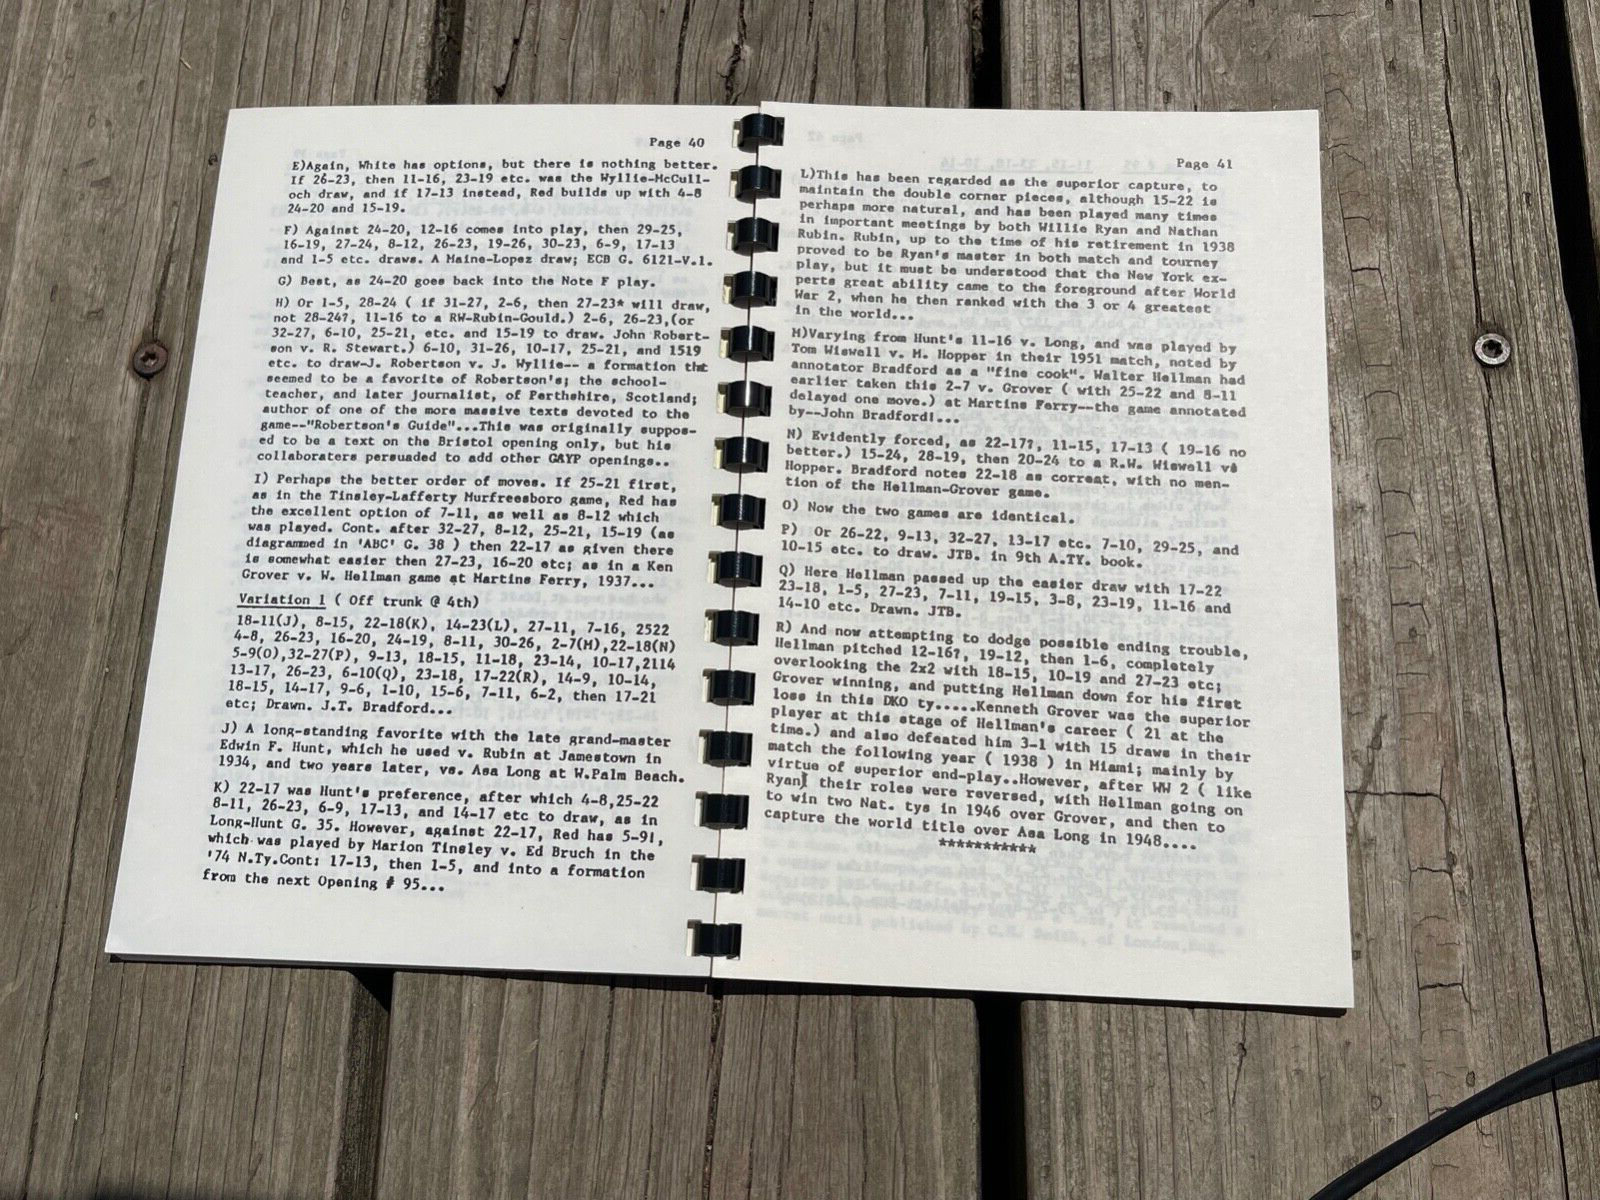 Page 40
E)Again, White has options, but there is nothing better.
If 26-23, then 11-16, 23-19 etc. was the Wyllie-McCull-
och draw, and if 17-13 instead, Red builds up with 4-8
24-20 and 15-19.
F) Against 24-20, 12-16 comes into play, then 29-25,
16-19, 27-24, 8-12, 26-23, 19-26, 30-23, 6-9, 17-13
and 1-5 etc. draws. A Maine-Lopez draw; ECB G. 6121-V.1.
G) Best, as 24-20 goes back into the Note F play.
H) Or 1-5, 28-24 ( if 31-27, 2-6, then 27-23* will draw,
not 28-24?, 11-16 to a RW-Rubin-Gould.) 2-6, 26-23,(or
32-27, 6-10, 25-21, etc. and 15-19 to draw. John Robert-
son v. R. Stewart.) 6-10, 31-26, 10-17, 25-21, and 1519
etc. to draw-J. Robertson v. J. Wyllie-- a formation that
seemed to be a favorite of Robertson's; the school-
teacher, and later journalist, of Perthshire, Scotland;
author of one of the more massive texts devoted to the
game--"Robertson's Guide"...This was originally suppos-
ed to be a text on the Bristol opening only, but his
collaboraters persuaded to add other GAYP openings..
I) Perhaps the better order of moves. If 25-21 first,
as in the Tinsley-Lafferty Murfreesboro game, Red has
the excellent option of 7-11, as well as 8-12 which
was played. Cont. after 32-27, 8-12, 25-21, 15-19 (as
diagrammed in 'ABC' G. 38 ) then 22-17 as given there
is somewhat easier then 27-23, 16-20 etc; as in a Ken
Grover v. W. Hellman game at Martins Ferry, 1937...
Variation 1 ( Off trunk @ 4th)
18-11(J), 8-15, 22-18(K), 14-23(L), 27-11, 7-16, 2522
4-8, 26-23, 16-20, 24-19, 8-11, 30-26, 2-7(M),22-18(N)
5-9(O),32-27(P), 9-13, 18-15, 11-18, 23-14, 10-17,2114
13-17, 26-23, 6-10(Q), 23-18, 17-22(R), 14-9, 10-14,
18-15, 14-17, 9-6, 1-10, 15-6, 7-11, 6-2, then 17-21
etc; Drawn. J.T. Bradford...
J) A long-standing favorite with the late grand-master
Edwin F. Hunt, which he used v. Rubin at Jamestown in
1934, and two years later, vs. Asa Long at W.Palm Beach.
K) 22-17 was Hunt's preference, after which 4-8,25-22
8-11, 26-23, 6-9, 17-13, and 14-17 etc to draw, as in
Long-Hunt G. 35. However, against 22-17, Red has 5-9!,
which was played by Marion Tinsley v. Ed Bruch in the
'74 N.Ty.Cont: 17-13, then 1-5, and into a formation
from the next Opening # 95...
Page 41
L)This has been regarded as the superior capture, to
maintain the double corner pieces, although 15-22 is
perhaps more natural, and has been played many times
in important meetings by both Willie Ryan and Nathan
Rubin. Rubin, up to the time of his retirement in 1938
proved to be Ryan's master in both match and tourney
play, but it must be understood that the New York ex-
perts great ability came to the foreground after World
War 2, when he then ranked with the 3 or 4 greatest
in the world...
M)Varying from Hunt's 11-16 v. Long, and was played by
Tom Wiswell v. M. Hopper in their 1951 match, noted by
annotator Bradford as a "fine cook". Walter Hellman had
earlier taken this 2-7 v. Grover ( with 25-22 and 8-11
delayed one move.) at Martins Ferry--the game annotated
by--John Bradford!...
N) Evidently forced, as 22-17?, 11-15, 17-13 ( 19-16 no
better.) 15-24, 28-19, then 20-24 to a R.W. Wiswell vs
Hopper. Bradford notes 22-18 as correct, with no men-
tion of the Hellman-Grover game.
O) Now the two games are identical.
P) Or 26-22, 9-13, 32-27, 13-17 etc. 7-10, 29-25, and
10-15 etc. to draw. JTB. in 9th A.TY. book.
Q) Here Hellman passed up the easier draw with 17-22
23-18, 1-5, 27-23, 7-11, 19-15, 3-8, 23-19, 11-16 and
14-10 etc. Drawn. JTB.
R) And now attempting to dodge possible ending trouble,
Hellman pitched 12-16?, 19-12, then 1-6, completely
overlooking the 2x2 with 18-15, 10-19 and 27-23 etc;
Grover winning, and putting Hellman down for his first
loss in this DKO ty.....Kenneth Grover was the superior
player at this stage of Hellman's career ( 21 at the
time.) and also defeated him 3-1 with 15 draws in their
match the following year ( 1938 ) in Miami; mainly by
virtue of superior end-play..However, after WW 2 ( like
Ryan) their roles were reversed, with Hellman going on
to win two Nat. tys in 1946 over Grover, and then to
capture the world title over Asa Long in 1948....
***********